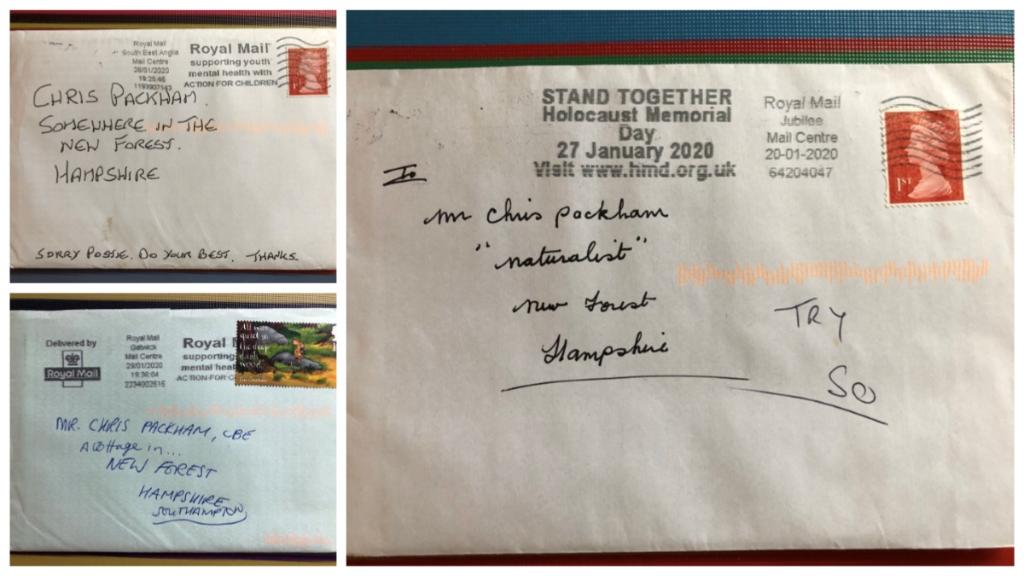 Royal Mail
South East Anglia
Mail Centre
28/01/2020
19:25:46
Royal Mail
supporting youth
mental health with
ACTION FOR CHILDREN
1ST
CHRIS PACKHAM.
SOMEWHERE IN THE
NEW FOREST.
HAMPSHIRE
SORRY POSTIE. DO YOUR BEST. THANKS.
Delivered by
Royal Mail
Royal Mail
Gatwick
Mail Centre
29/01/2020
19:36:04
2234002616
Royal
supporting
mental heal
ACTION FOR C
All was
quiet in
the deep
dark
wood.
MR. CHRIS PACKHAM, CBE
A Cottage in...
NEW FOREST
HAMPSHIRE
SOUTHAMPTON
STAND TOGETHER
Holocaust Memorial
Day
27 January 2020
Visit www.hmd.org.uk
Royal Mail
Jubilee
Mail Centre
20-01-2020
64204047
1ST
To
Mr Chris Packham
"naturalist"
New Forest
Hampshire
TRY
SO